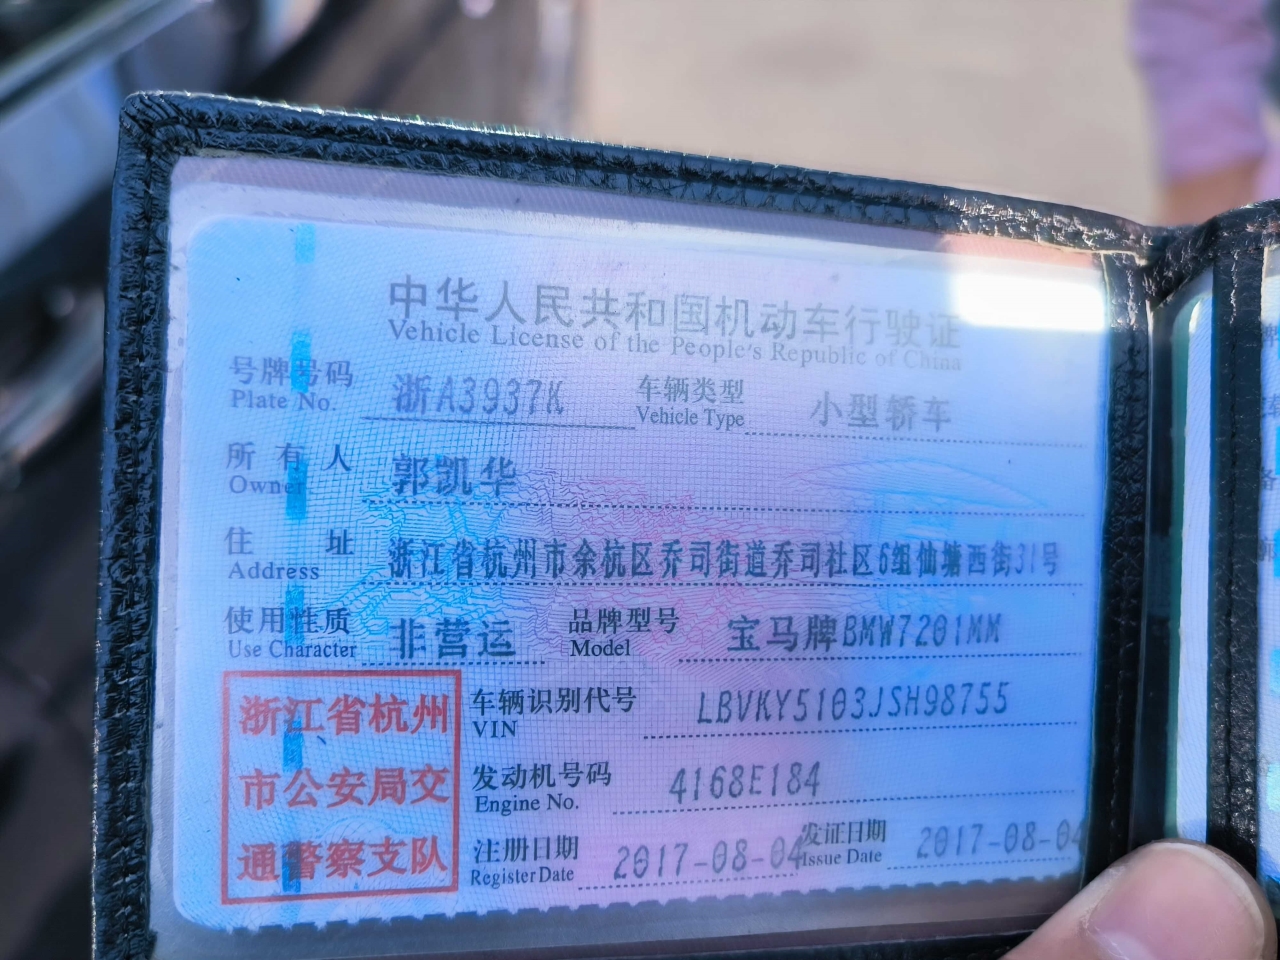 中华人民共和国机动车行驶证
Vehicle License of the People's Republic of China
号牌号码 浙A3937K 车辆类型 小型轿车
Plate No. Vehicle Type
所有人 郭凯华
Owner
住址 浙江省杭州市余杭区乔司街道乔司社区6组仙塘西街31号
Address
使用性质 非营运 品牌型号 宝马牌BMW7201MM
Use Character Model
浙江省杭州
市公安局交
通警察支队
车辆识别代号 LBVKY5103JSH98755
VIN
发动机号码 4168E184
Engine No.
注册日期 2017-08-04 发证日期 2017-08-04
Register Date Issue Date